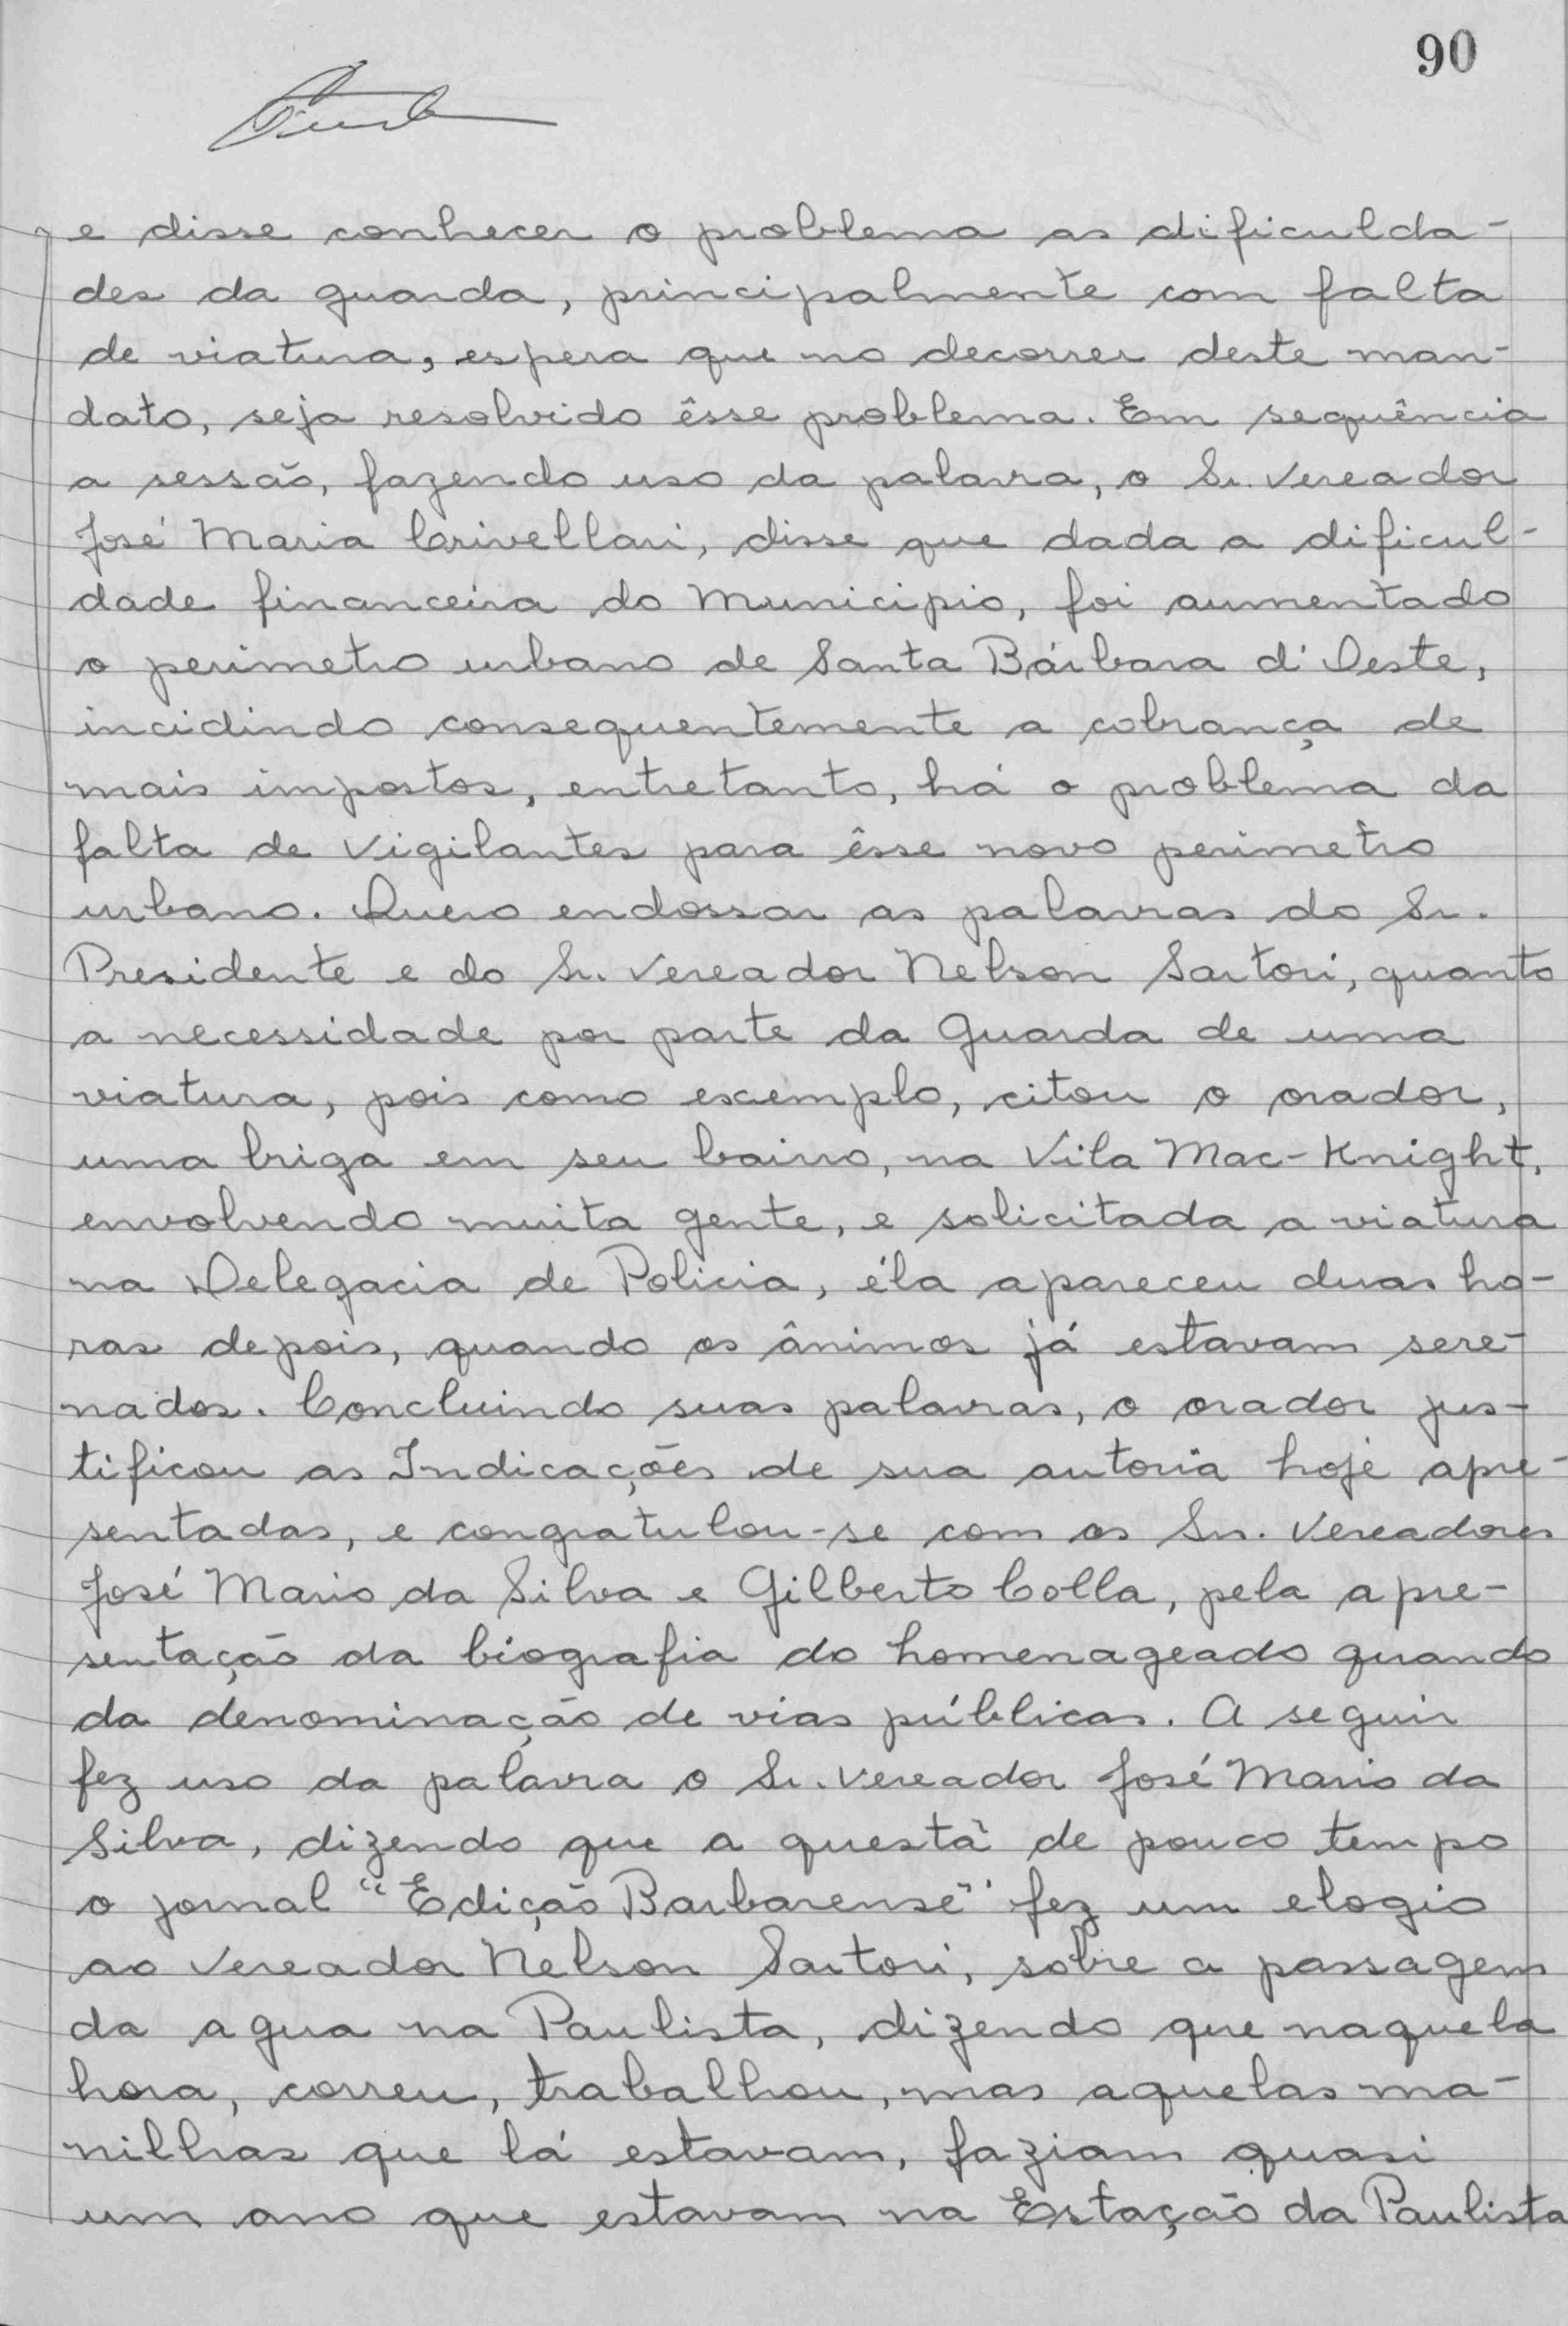 90
e disse conhecer o problema as dificulda-
des da guarda, principalmente com falta
de viatura, espera que no decorrer deste man-
dato, seja resolvido êsse problema. Em sequência
a sessão, fazendo uso da palavra, o Sr. Vereador
José Maria Crivellari, disse que dada a dificul-
dade financeira do Municipio, foi aumentado
o perimetro urbano de Santa Bárbara d'Oeste,
incidindo consequentemente a cobrança de
mais impostos, entretanto, há o problema da
falta de Vigilantes para êsse novo perimetro
urbano. Quero endossar as palavras do Sr.
Presidente e do Sr. Vereador Nelson Sartori, quanto
a necessidade por parte da Guarda de uma
viatura, pois como exemplo, citou o orador,
uma briga em seu bairro, na Vila Mac-Knight,
envolvendo muita gente, e solicitada a viatura
na Delegacia de Policia, éla apareceu duas ho-
ras depois, quando os ânimos já estavam sere-
nados. Concluindo suas palavras, o orador jus-
tificou as Indicações de sua autoria hoje apre-
sentadas, e congratulou-se com os Srs. Vereadores
José Mario da Silva e Gilberto Colla, pela apre-
sentação da biografia do homenageado quando
da denominação de vias públicas. A seguir
fez uso da palavra o Sr. Vereador José Mario da
Silva, dizendo que a questã de pouco tempo
o jornal "Edição Barbarense" fez um elogio
ao Vereador Nelson Sartori, sobre a passagem
da agua na Paulista, dizendo que naquela
hora, correu, trabalhou, mas aquelas ma-
nilhas que lá estavam, faziam quasi
um ano que estavam na Estação da Paulista